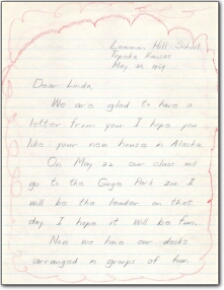 Hill School
Topeka Kansas
May 21, 1969
Dear Linda,
We are glad to have a
letter from you. I hope you
like your new house in Alaska.
On May 22 our class will
go to the Gage Park zoo. I
will be the leader on that
day. I hope it will be fun.
Now we have our desks
arranged in groups of four.